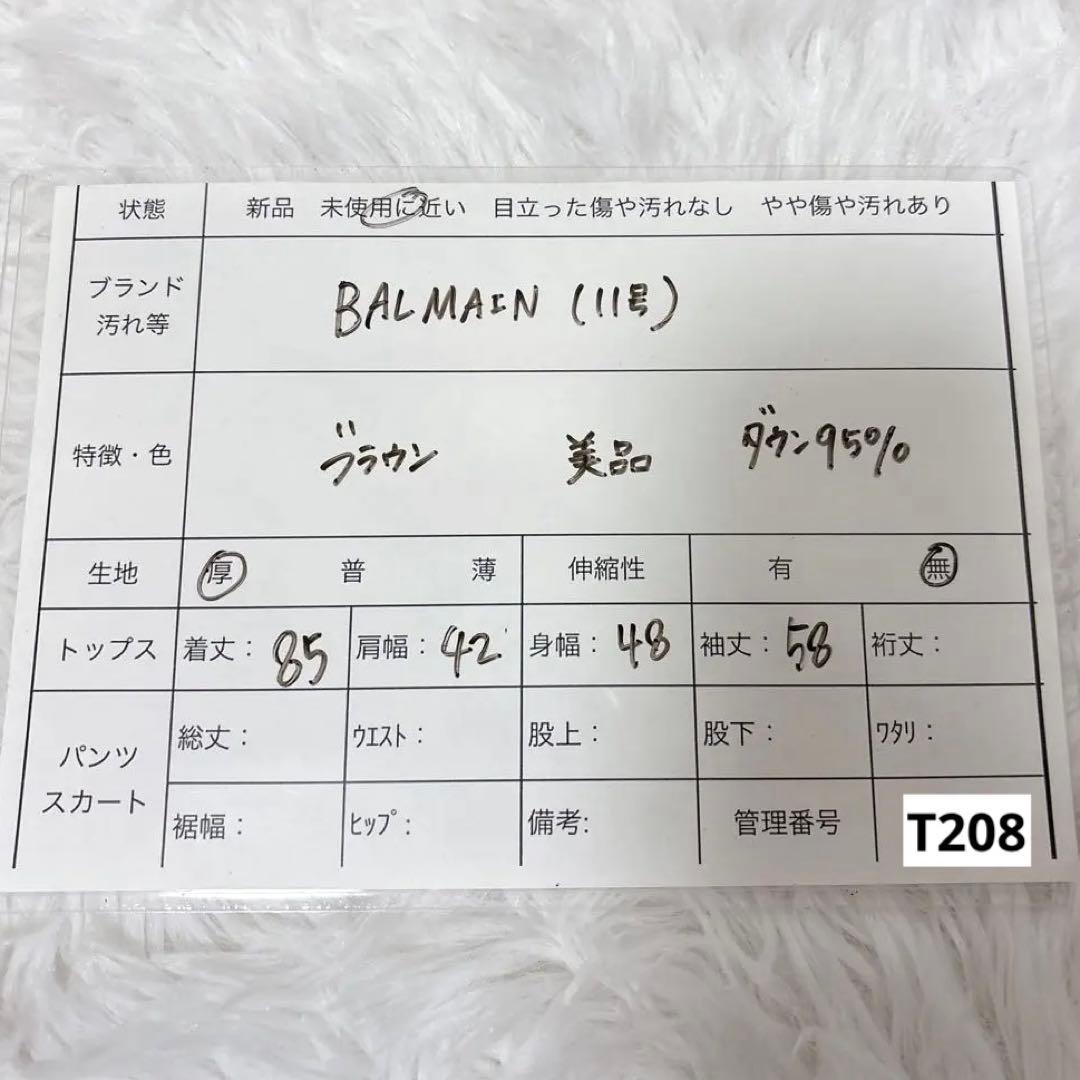 状態 新品 未使用に近い 目立った傷や汚れなし やや傷や汚れあり
ブランド
汚れ等
BALMAIN (11号)
特徴・色 ブラウン 美品 ダウン95%
生地 厚 普 薄 伸縮性 有 無
トップス 着丈：85 肩幅：42 身幅：48 袖丈：58 裄丈：
パンツ
スカート
総丈： ｳｴｽﾄ： 股上： 股下： ﾜﾀﾘ：
裾幅： ﾋｯﾌﾟ： 備考: 管理番号 T208